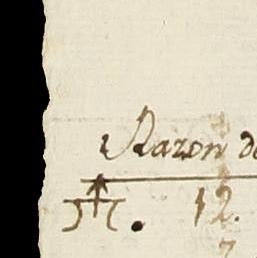 Razon de
12.
7